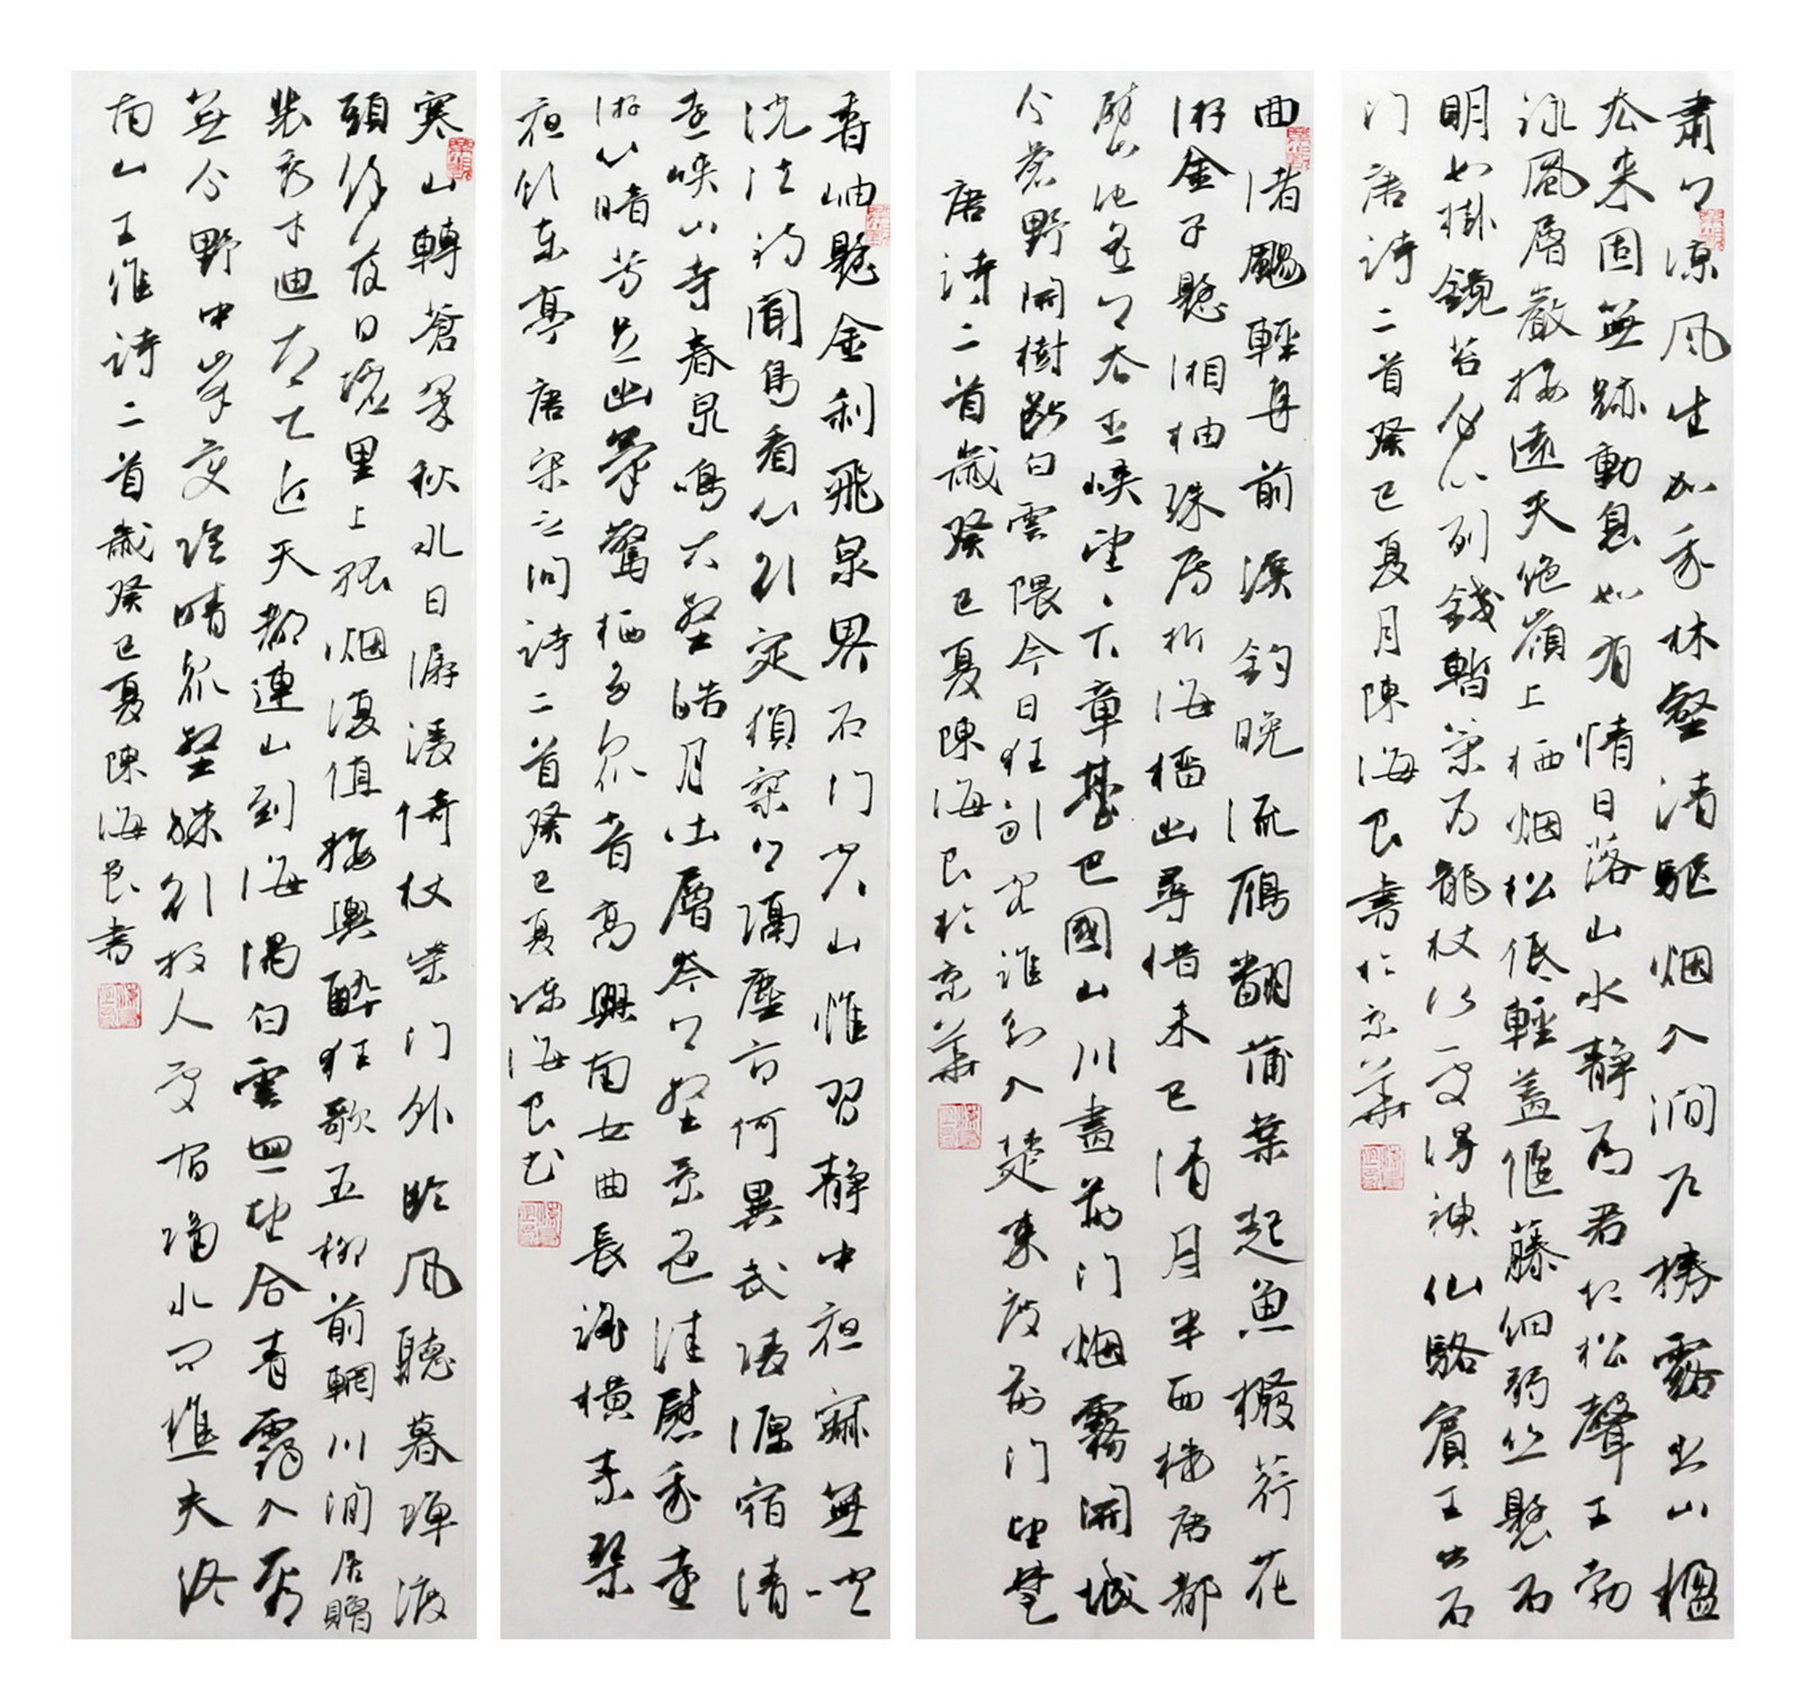 肅〻涼风生加我林壑清驱烟入澗户捲霧出山楹
去来固無跡動息如有情日落山水静為君起松聲王勃
詠風層巖接遠天絶嶺上栖烟松低輕蓋偃藤細弱丝懸石
明如掛鏡苔分似列錢暫策為龍杖何處得神仙駱賓王出石
门唐詩二首癸巳夏月陳海良書於京華
曲渚颺輕舟前溪釣晚流雁翻蒲葉起魚撥荇花
游金子懸湘柚珠房折海榴幽尋惜未已清月半西樓唐都
尉山池遥〻去巫峡望〻下章臺巴國山川盡荆门烟霧開城
分蒼野開樹断白雲隈今日狂歌客誰知入楚来度荆门望楚
唐詩二首歲癸巳夏陳海良於京華
香岫懸金刹飛泉界石门空山惟習静中夜寂無喧
説法初聞鳥看心欲定猿寂〻隔塵事何異武陵源宿清
遠峡山寺春泉鳴大壑皓月吐層岑〻壑景色佳慰我遠
游心暗芳足幽氣驚栖多众音高興南山曲長謡横素琴
夜飲東亭 唐宋之问詩二首癸巳夏陳海良書
寒山轉蒼翠秋水日潺湲倚杖柴门外臨风聽暮蟬渡
頭餘落日墟里上孤烟復值接輿醉狂歌五柳前輞川閒居贈
裴秀才迪太乙近天都連山到海隅白雲回望合青靄入看
無分野中峯變陰晴众壑殊欲投人處宿隔水问樵夫终
南山王維詩二首歲癸巳夏陳海良書